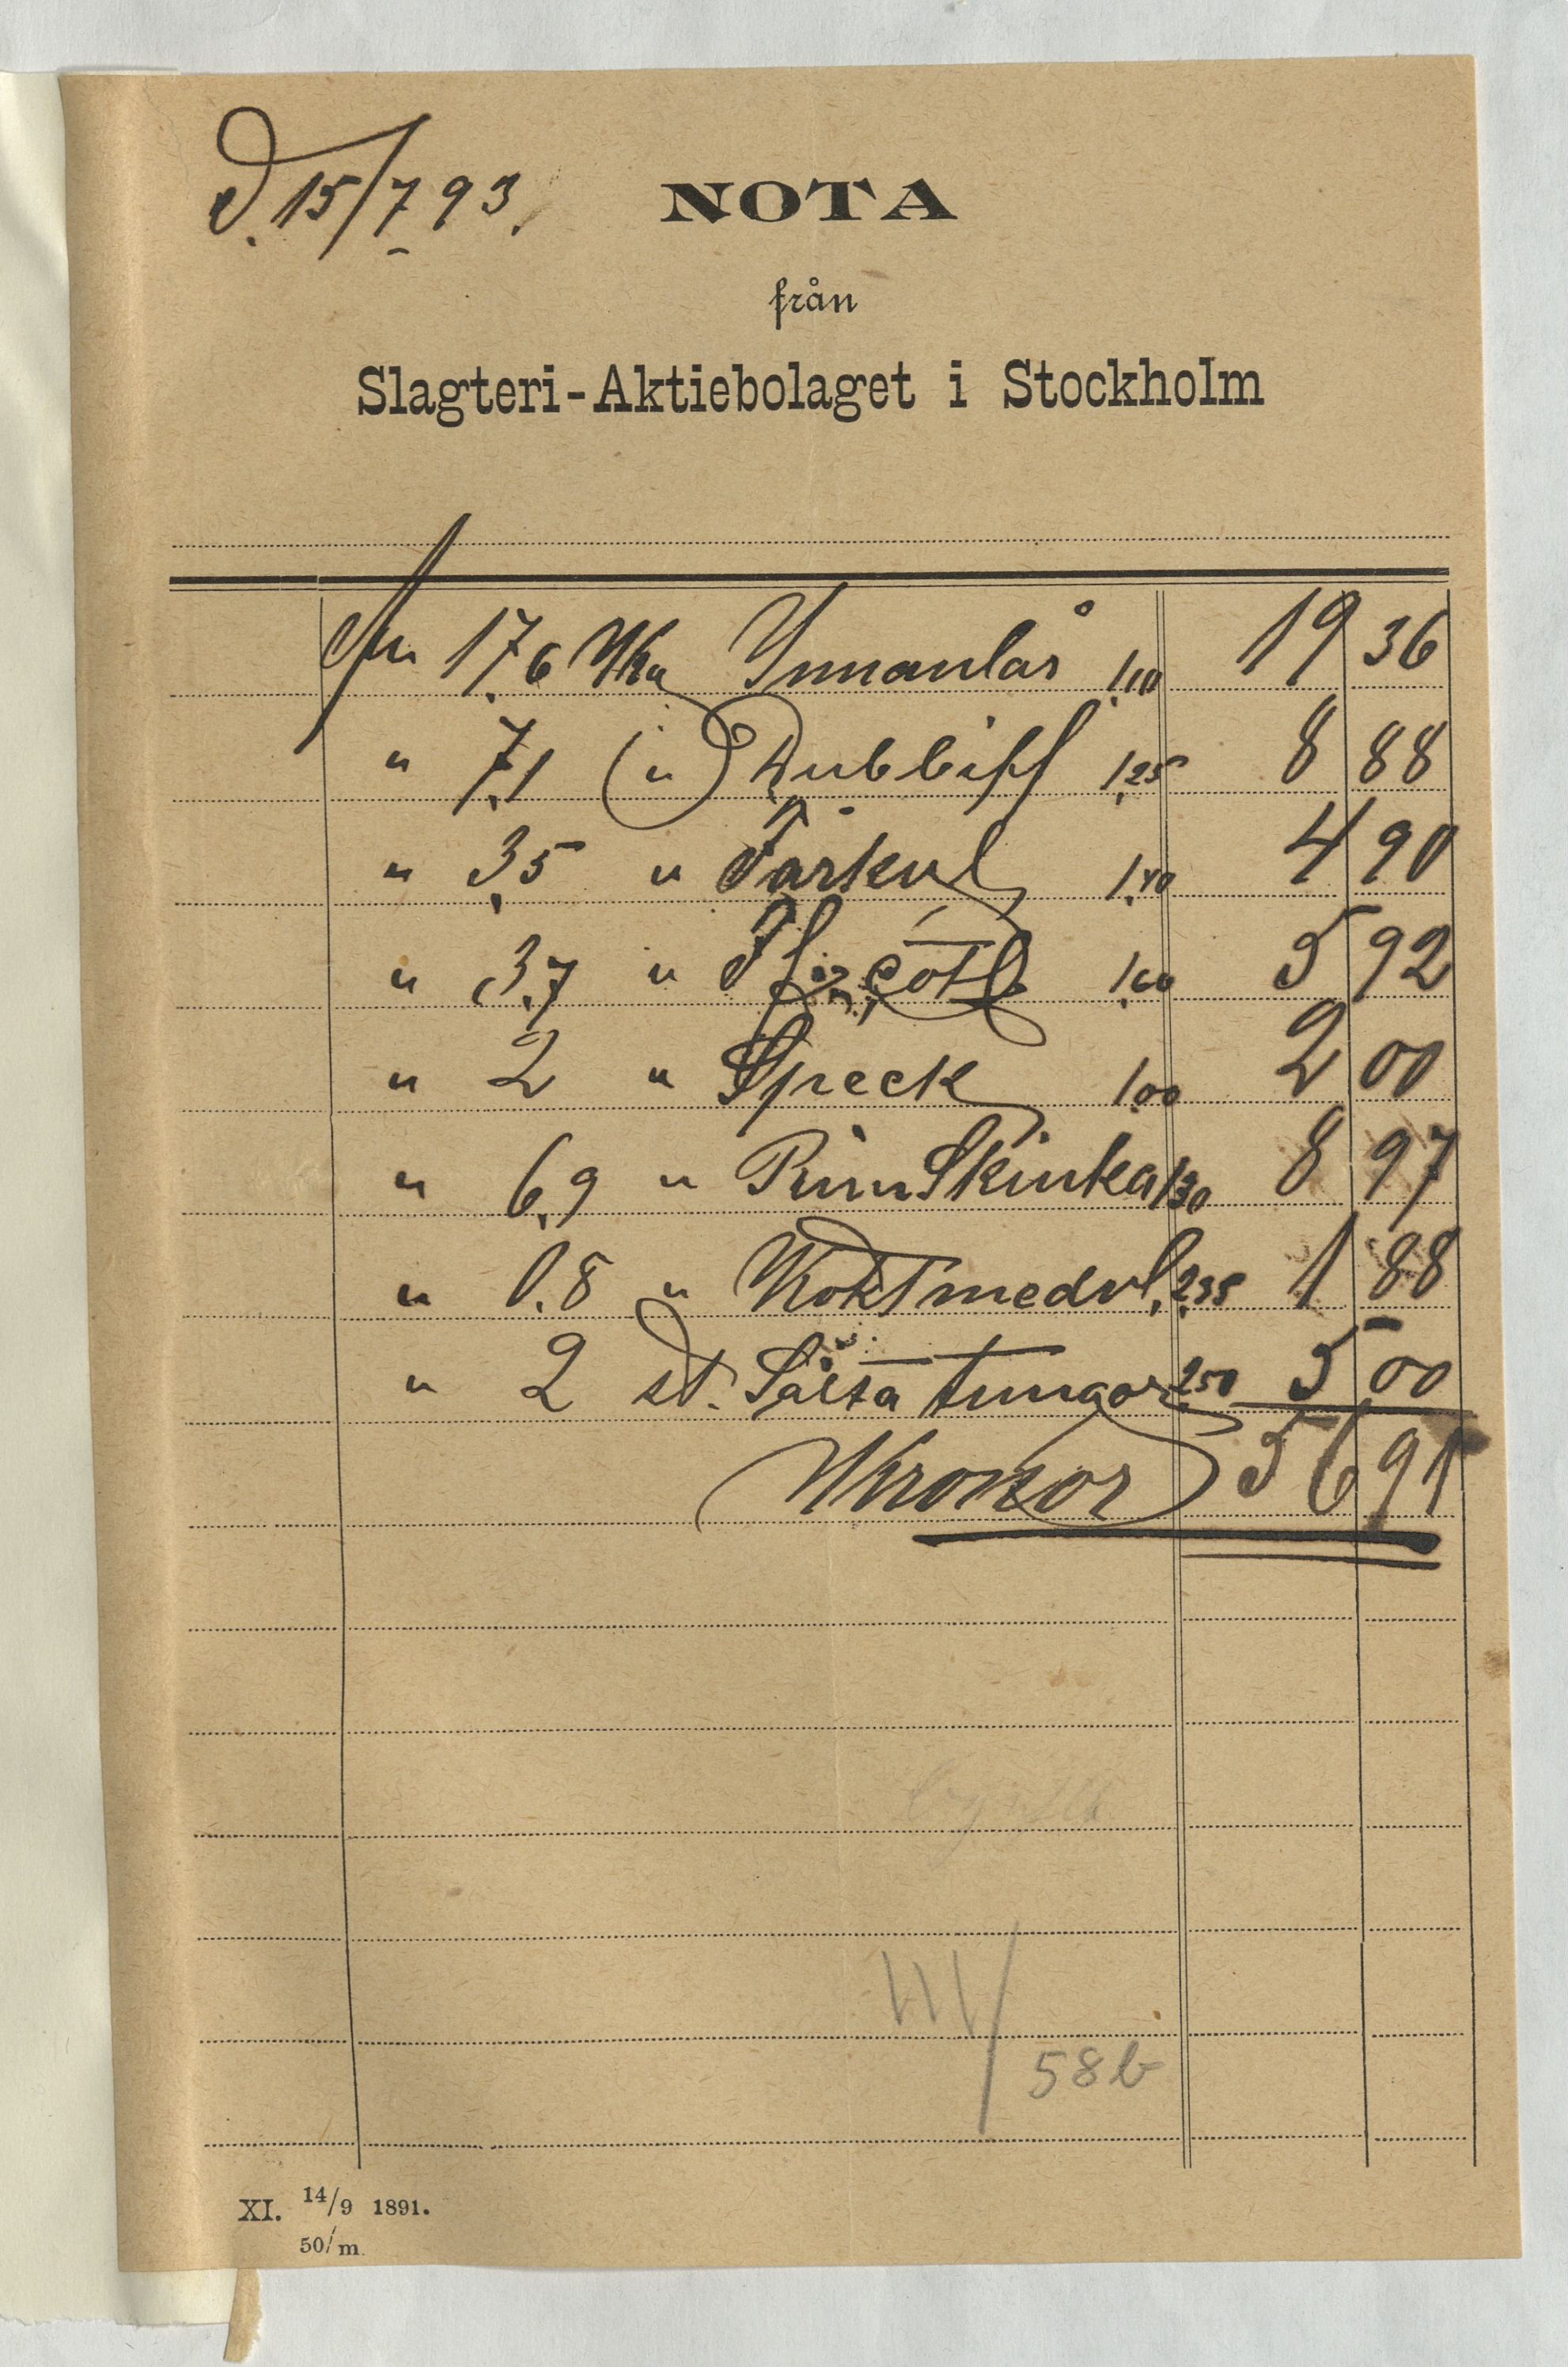 D. 15/7 93.
NOTA
från
Slagteri-Aktiebolaget i Stockholm
17,6 Innanlår 1,10 19 36
" 7,1 " Dubbiff 1,25 8 88
" 3,5 " Fårkul 1,40 4 90
" 3,7 " 1,60 5 92
" 2 " Speck 1,00 2 00
" 6,9 " RimSkinka 1,30 8 97
" 0,8 " Kokt medvl. 2,35 1 88
" 2 st. Salta tungor 2,50 5 00
Kronor 56 91
III/
58b
XI. 14/9 1891.
50/m.